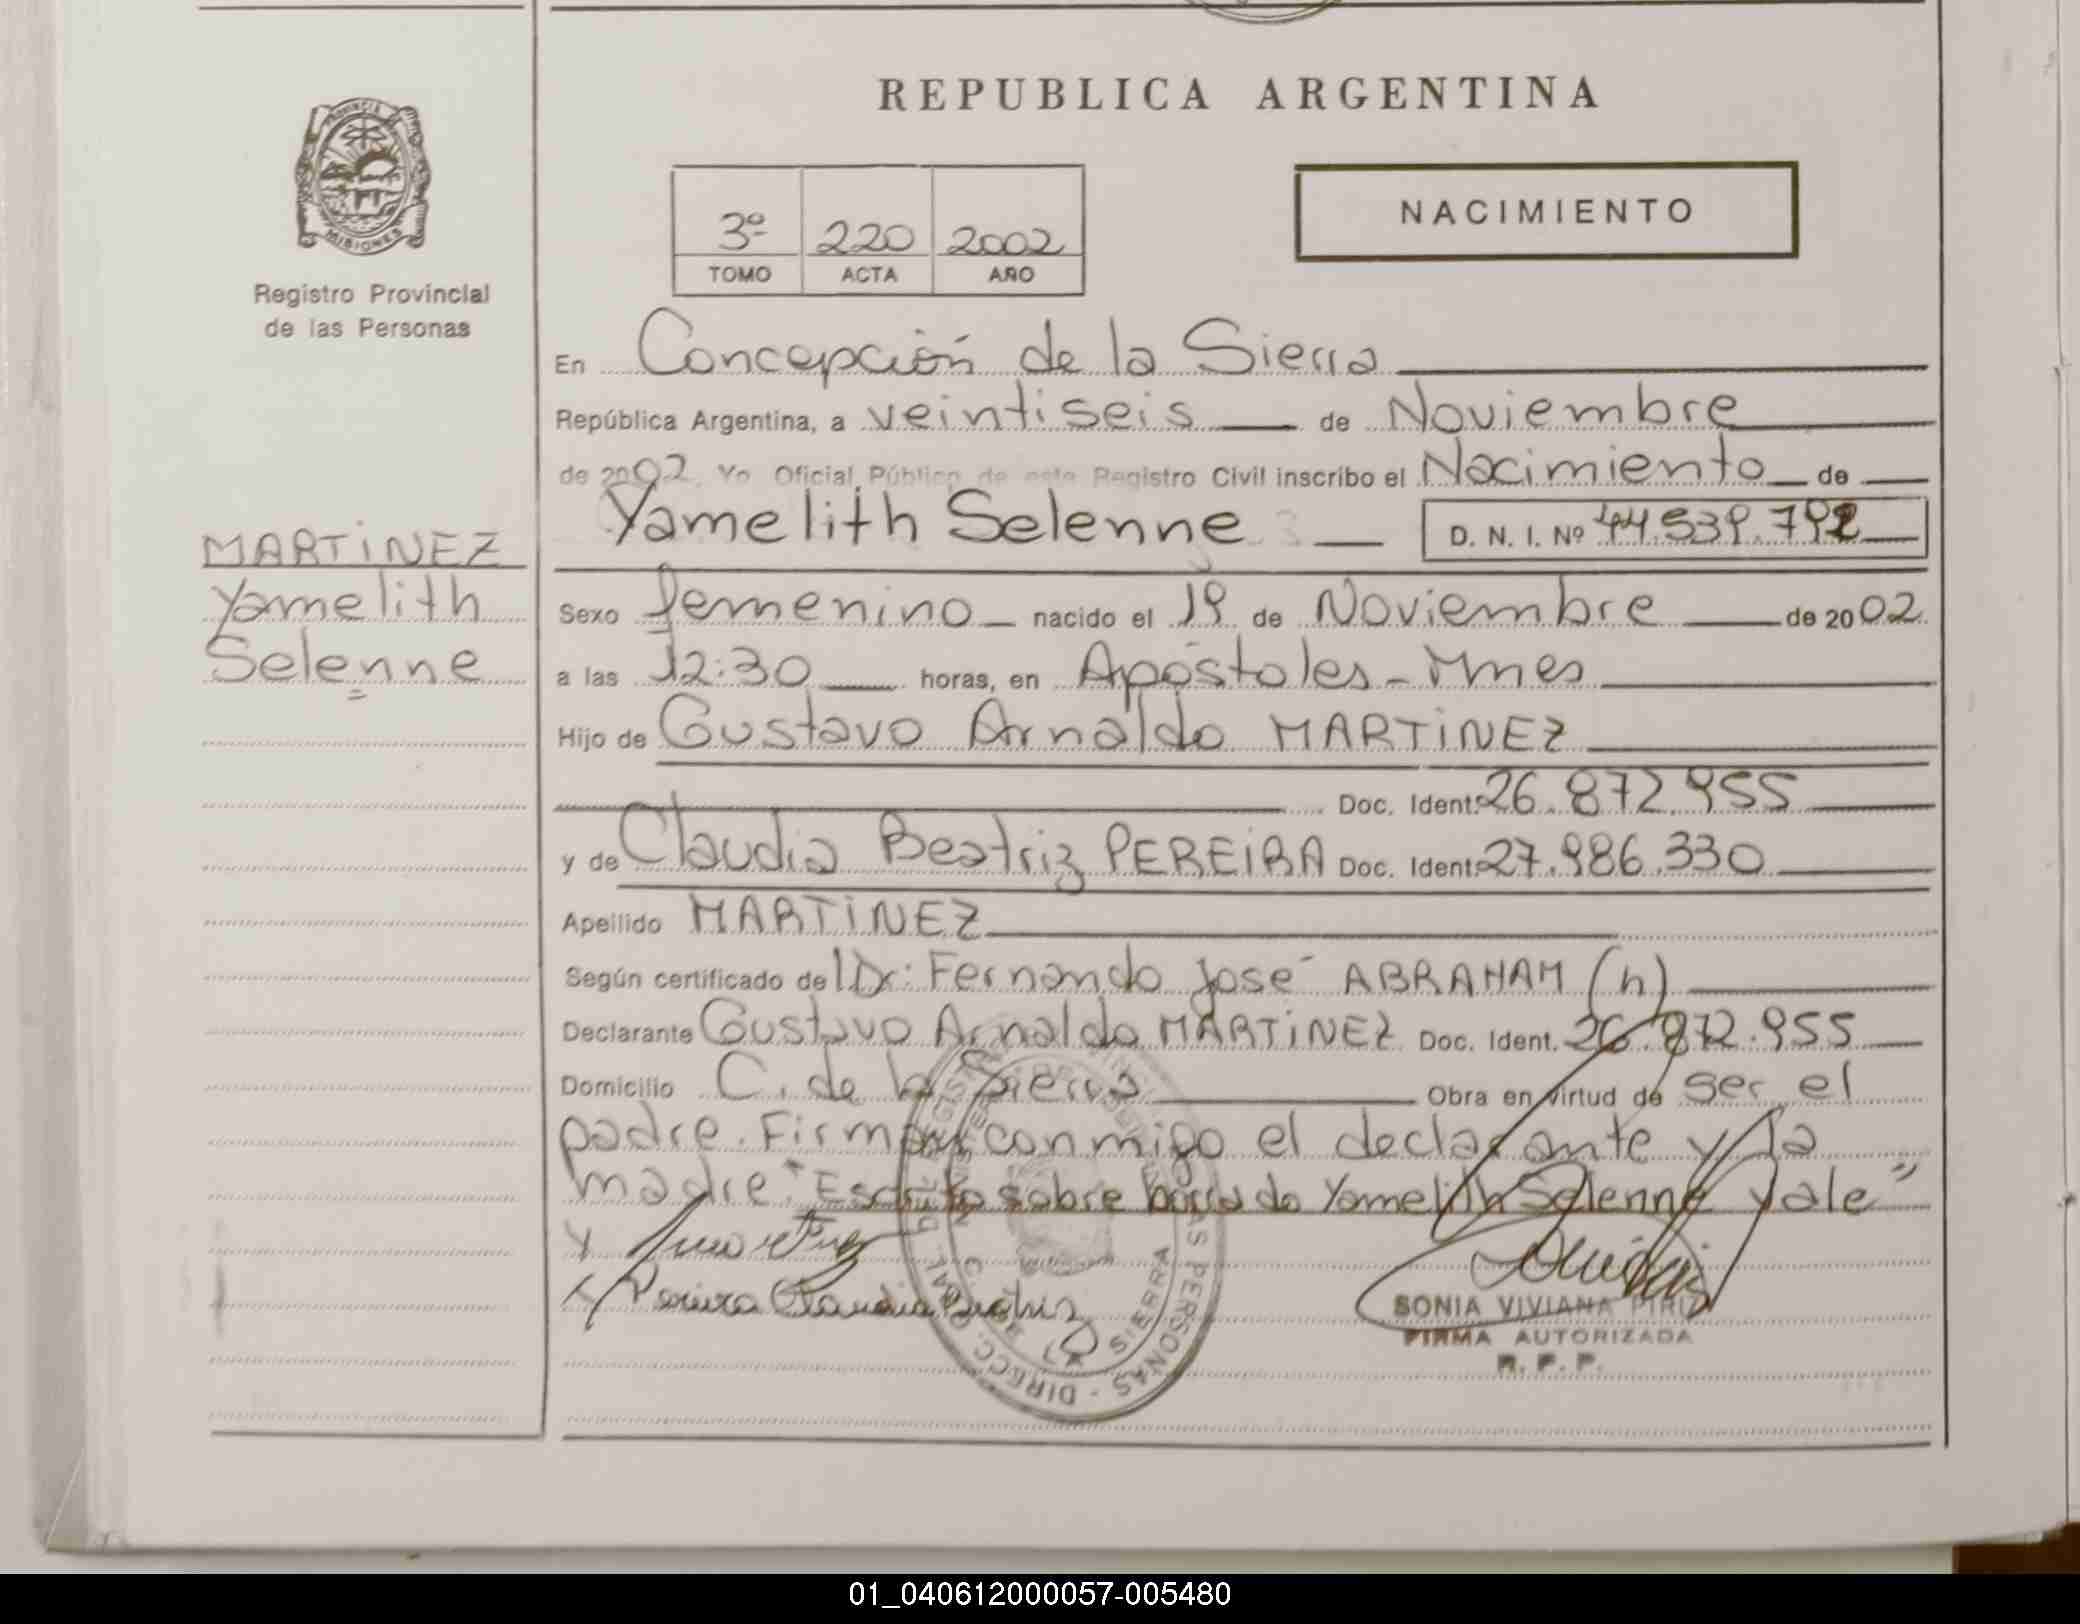 REPUBLICA ARGENTINA
PROVINCIA
MISIONES
Registro Provincial
de las Personas
3º 220 2002
TOMO ACTA AÑO
NACIMIENTO
En Concepción de la Sierra
República Argentina, a veintiseis de Noviembre
de 2002. Yo Oficial Público de este Registro Civil inscribo el Nacimiento de
Yamelith Selenne D. N. I. Nº 44.539.792
MARTINEZ
Yamelith
Selenne
Sexo femenino nacido el 19 de Noviembre de 2002
a las 12:30 horas, en Apóstoles - Mnes
Hijo de Gustavo Arnaldo MARTINEZ
Doc. Ident. 26.872.955
y de Claudia Beatriz PEREIRA Doc. Ident. 27.986.330
Apellido MARTINEZ
Según certificado del Dr: Fernando José ABRAHAM (h)
Declarante Gustavo Arnaldo MARTINEZ Doc. Ident. 26.872.955
Domicilio C. de la Sierra Obra en virtud de ser el
padre. Firman conmigo el declarante y la
madre "Escrito sobre borrado Yamelith Selenne Vale"
Pereira Claudia Beatriz
SONIA VIVIANA PIRIZ
FIRMA AUTORIZADA
R. P. P.
01_040612000057-005480